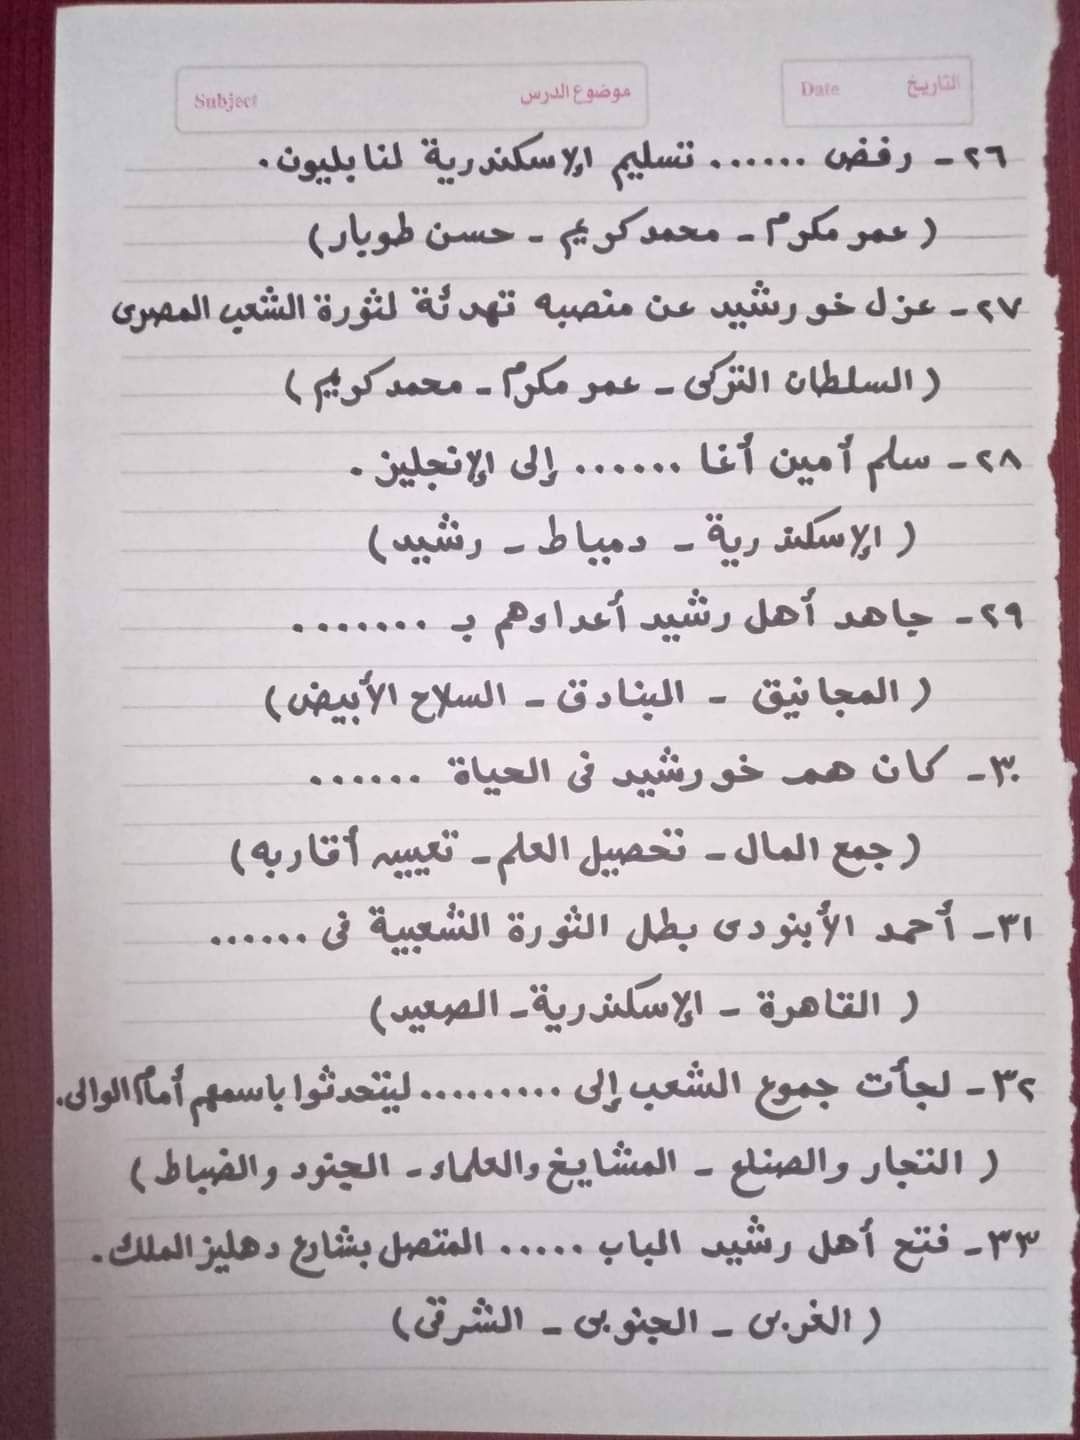 التاريخ Date موضوع الدرس Subject
٢٦- رفض ...... تسليم الإسكندرية لنابليون.
( عمر مكرم - محمد كريم - حسن طوبار)
٢٧- عزل خورشيد عن منصبه تهدئة لثورة الشعب المصرى
( السلطان التركى - عمر مكرم - محمد كريم )
٢٨- سلم أمين أغا ...... إلى الإنجليز.
( الإسكندرية - دمياط - رشيد)
٢٩- جاهد أهل رشيد أعداءهم بـ .......
( المجانيق - البنادق - السلاح الأبيض)
٣٠- كان هم خورشيد فى الحياة ......
( جمع المال - تحصيل العلم - تعيين أقاربه )
٣١- أحمد الأبنودى بطل الثورة الشعبية فى ......
( القاهرة - الإسكندرية - الصعيد)
٣٢- لجأت جموع الشعب إلى ......... ليتحدثوا باسمهم أمام الوالى.
( التجار والصناع - المشايخ والعلماء - الجنود والضباط )
٣٣- فتح أهل رشيد الباب ..... المتصل بشارع دهليز الملك.
( الغربى - الجنوبى - الشرقى)